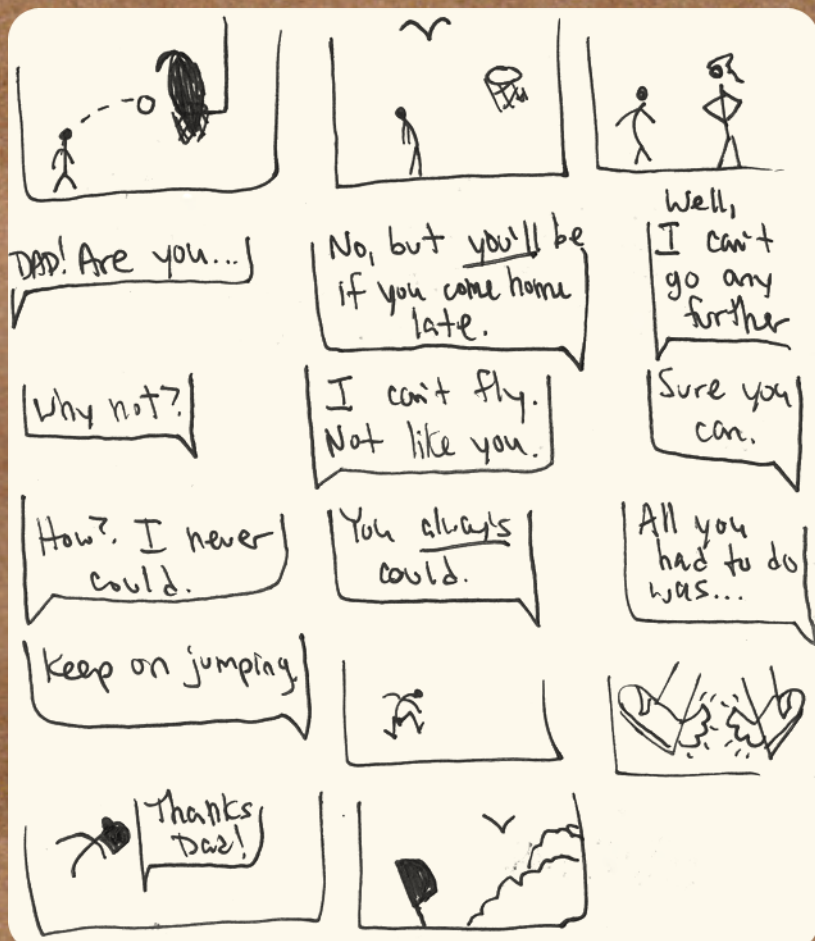 DAD! Are you...
No, but you'll be
if you come home
late.
Well,
I can't
go any
further
Why not?
I can't fly.
Not like you.
Sure you
can.
How? I never
could.
You always
could.
All you
had to do
was...
Keep on jumping.
Thanks
Dad!